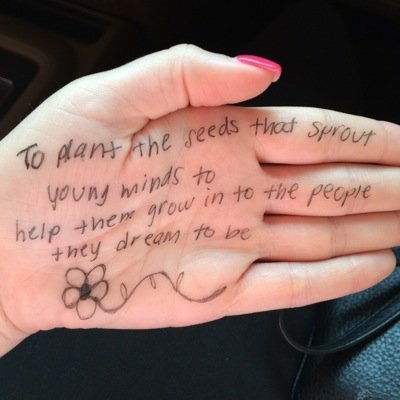 To plant the seeds that sprout
young minds to
help them grow in to the people
they dream to be